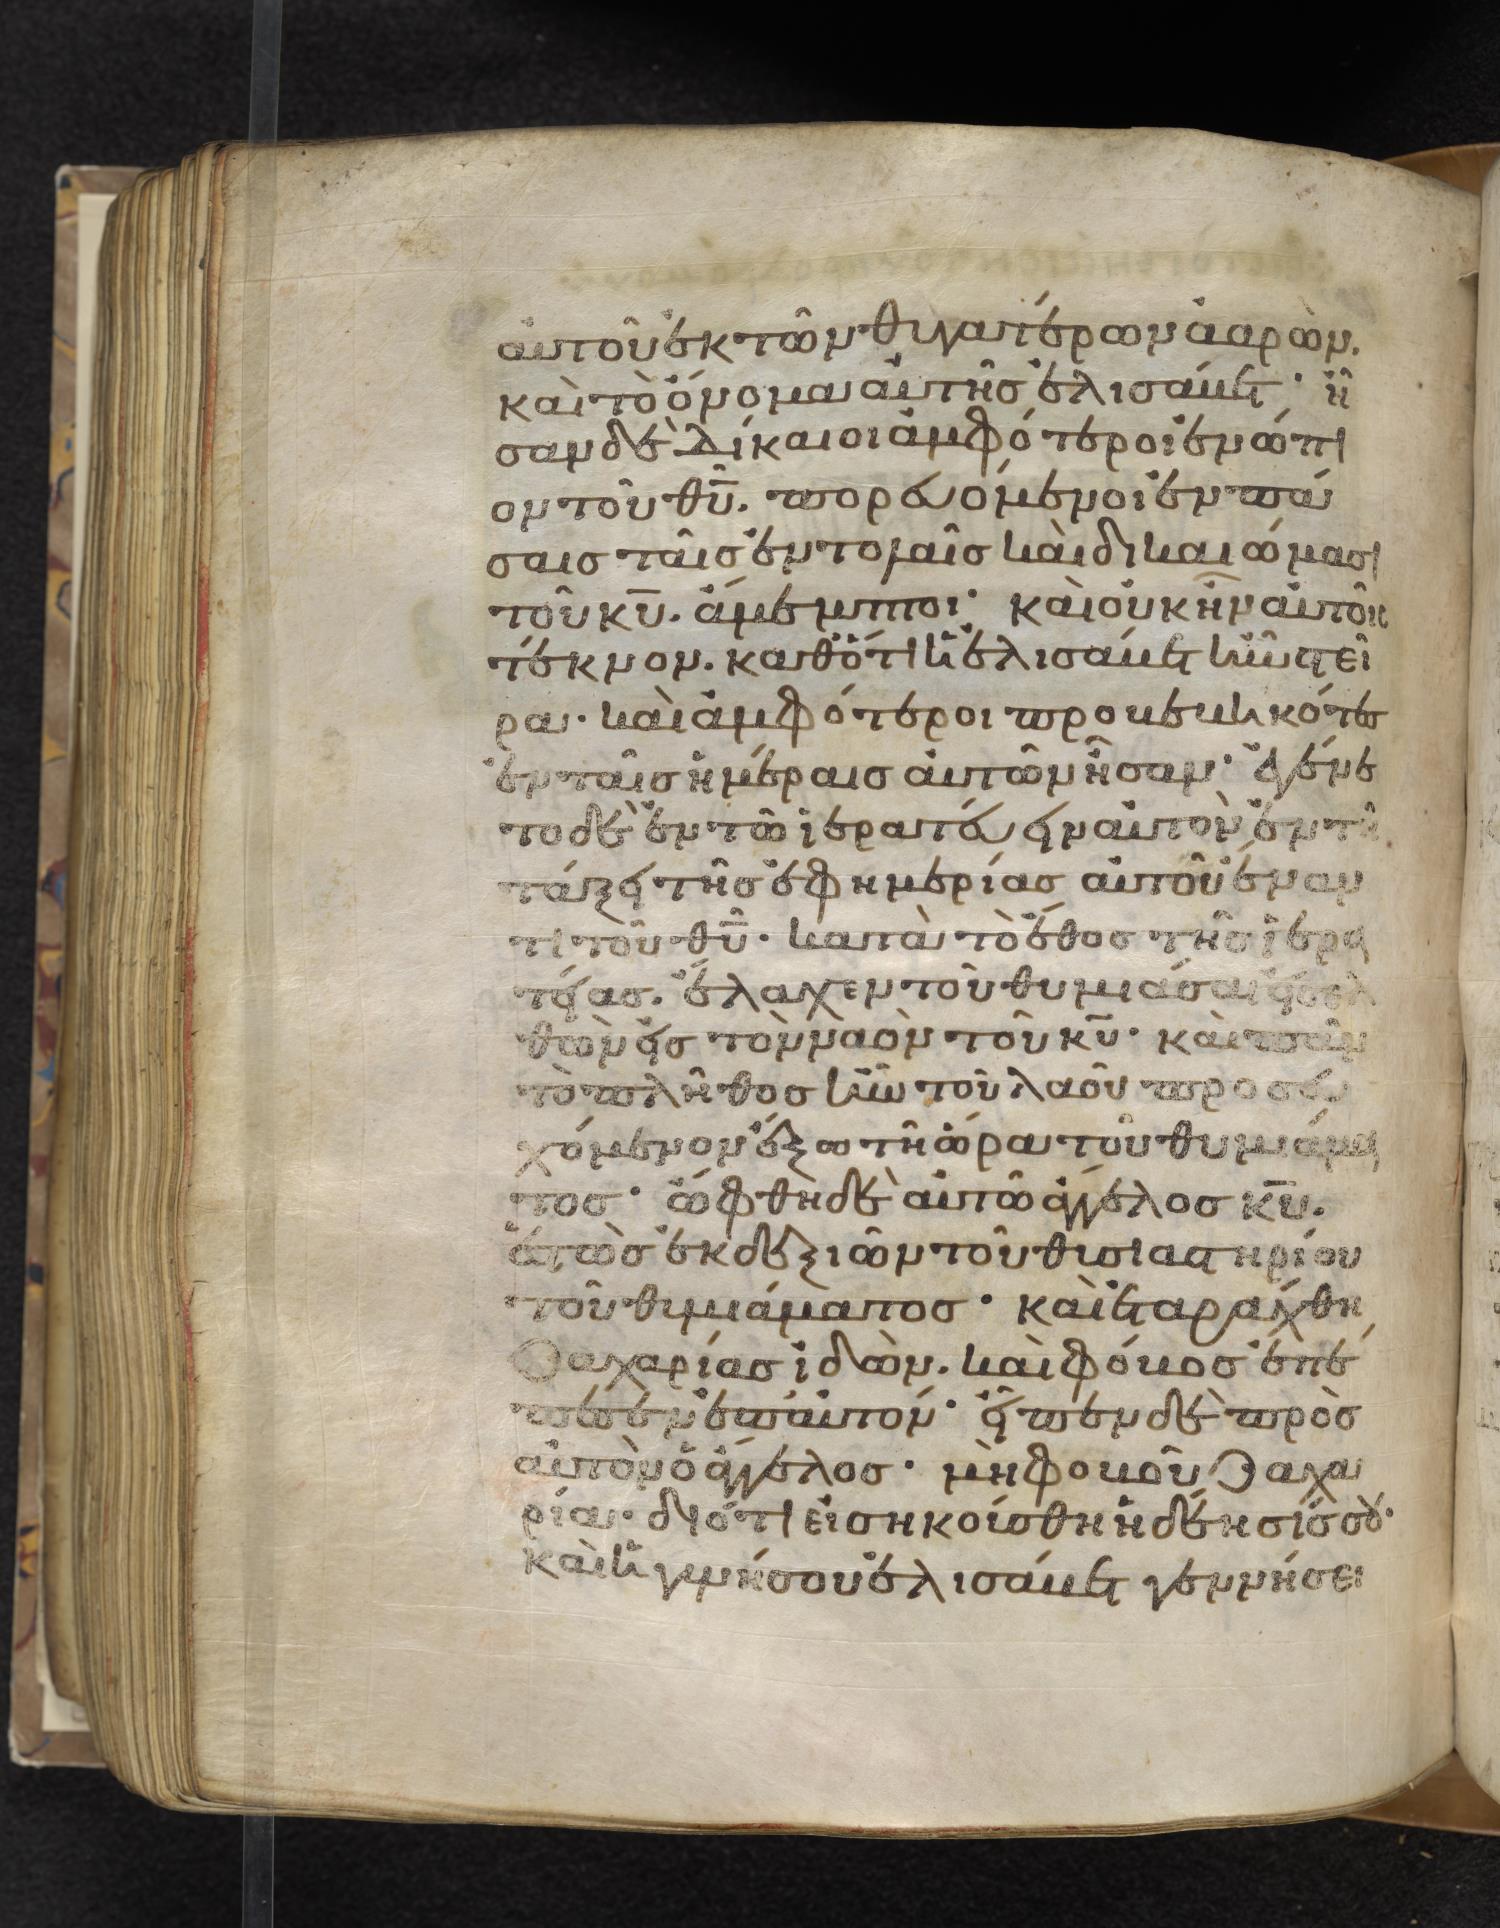 αὐτοῦ ἐκ τῶν θυγατέρων ἀαρὼν.
καὶ τὸ ὄνομα αὐτῆς ἐλισάβετ· ἦ
σαν δὲ δίκαιοι ἀμφότεροι ἐνώπι
ον τοῦ θῦ. πορευόμενοι ἐν πά
σαις ταῖς ἐντολαῖς καὶ δικαιώμασι
τοῦ κῡ. ἄμεμπτοι· καὶ οὐκ ἦν αὐτοῖς
τέκνον. καθότι ἡ ἐλισάβετ ἦν στεῖ
ρα· καὶ ἀμφότεροι προβεβηκότες
ἐν ταῖς ἡμέραις αὐτῶν ἦσαν· ἐγένε
το δὲ ἐν τῶ ἱερατεύειν αὐτὸν ἐν τῆ
τάξει τῆς ἐφημερίας αὐτοῦ ἔναν
τι τοῦ θῦ· κατὰ τὸ ἔθος τῆς ἱερα
τείας. ἔλαχεν τοῦ θυμιάσαι εἰσελ
θὼν εἰς τὸν ναὸν τοῦ κῡ· καὶ πᾶν
τὸ πλῆθος ἦν τοῦ λαοῦ προσευ
χόμενον ἔξω τῆ ὥρα τοῦ θυμιάμα
τος· ὤφθη δὲ αὐτῶ ἄγγελος κῡ.
ἑστὼς ἐκ δεξιῶν τοῦ θυσιαστηρίου
τοῦ θυμιάματος· καὶ ἐταράχθη
Ζαχαρίας ἰδὼν. καὶ φόβος ἐπέ
πεσεν ἐπ αὐτόν· εἶπεν δὲ πρὸς
αὐτὸν ὁ ἄγγελος· μὴ φοβοῦ Ζαχα
ρία· διότι εἰσηκούσθη ἡ δέησίς σου·
καὶ ἡ γυνή σου ἐλισάβετ γεννήσει